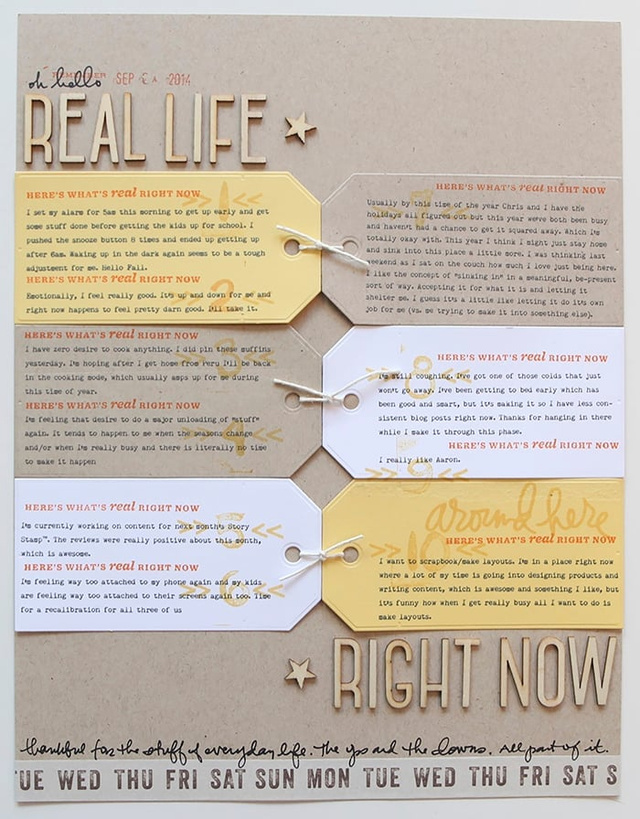 REMEMBER SEP 24 2014
oh hello
REAL LIFE
HERE'S WHAT'S real RIGHT NOW
1
I set my alarm for 5am this morning to get up early and get
some stuff done before getting the kids up for school. I
pushed the snooze button 8 times and ended up getting up
after 6am. Waking up in the dark again seems to be a tough
adjustment for me. Hello Fall.
HERE'S WHAT'S real RIGHT NOW
2
Emotionally, I feel really good. It's up and down for me and
right now happens to feel pretty darn good. I'll take it.
HERE'S WHAT'S real RIGHT NOW
3
I have zero desire to cook anything. I did pin these muffins
yesterday. I'm hoping after I get home from Peru I'll be back
in the cooking mode, which usually amps up for me during
this time of year.
HERE'S WHAT'S real RIGHT NOW
4
I'm feeling that desire to do a major unloading of "stuff"
again. It tends to happen to me when the seasons change
and/or when I'm really busy and there is literally no time
to make it happen
HERE'S WHAT'S real RIGHT NOW
5
I'm currently working on content for next month's Story
Stamp™. The reviews were really positive about this month,
which is awesome.
HERE'S WHAT'S real RIGHT NOW
6
I'm feeling way too attached to my phone again and my kids
are feeling way too attached to their screens again too. Time
for a recalibration for all three of us
HERE'S WHAT'S real RIGHT NOW
7
Usually by this time of the year Chris and I have the
holidays all figured out but this year we've both been busy
and haven't had a chance to get it squared away. Which I'm
totally okay with. This year I think I might just stay home
and sink into this place a little more. I was thinking last
weekend as I sat on the couch how much I love just being here.
I like the concept of "sinking in" in a meaningful, be-present
sort of way. Accepting it for what it is and letting it
shelter me. I guess it's a little like letting it do it's own
job for me (vs. me trying to make it into something else).
HERE'S WHAT'S real RIGHT NOW
8
I'm still coughing. I've got one of those colds that just
won't go away. I've been getting to bed early which has
been good and smart, but it's making it so I have less con-
sistent blog posts right now. Thanks for hanging in there
while I make it through this phase.
HERE'S WHAT'S real RIGHT NOW
9
I really like Aaron.
around here
HERE'S WHAT'S real RIGHT NOW
10
I want to scrapbook/make layouts. I'm in a place right now
where a lot of my time is going into designing products and
writing content, which is awesome and something I like, but
it's funny how when I get really busy all I want to do is
make layouts.
RIGHT NOW
thankful for the stuff of everyday life. the ups and the downs. all part of it.
UE WED THU FRI SAT SUN MON TUE WED THU FRI SAT S